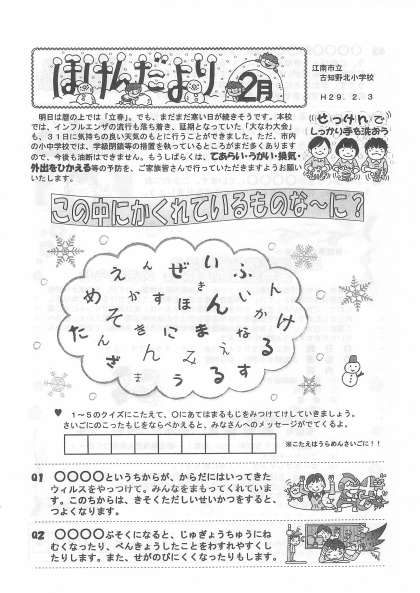 ほけんだより
2月
江南市立
古知野北小学校
H29.2.3
明日は暦の上では「立春」。でも、まだまだ寒い日が続きそうです。本校
では、インフルエンザの流行も落ち着き、延期となっていた「大なわ大会」
も、31日に気持ちの良い天気のもとに行うことができました。ただ、市内
の小中学校では、学級閉鎖等の措置を執っているところがまだ多くあります
ので、今後も油断はできません。もうしばらくは、てあらい・うがい・換気・
外出をひかえる等の予防を、ご家族皆さんで行っていただきますようお願い
いたします。
せっけんで
しっかり手を洗おう
この中にかくれているものな〜に？
え ん ぜ い ふ
め か す ほ き ん い ん
た そ き に ま な か け
ん ざ ん み え る
ま う る す
♥ 1〜5のクイズにこたえて、〇にあてはまるもじをみつけてけしていきましょう。
さいごにのこったもじをならべかえると、みなさんへのメッセージがでてくるよ。
※こたえはうらめんさいごに！！
Q1 〇〇〇〇というちからが、からだにはいってきた
ウィルスをやっつけて、みんなをまもってくれていま
す。このちからは、きそくただしいせいかつをすると、
つよくなります。
Q2 〇〇〇〇ぶそくになると、じゅぎょうちゅうにね
むくなったり、べんきょうしたことをわすれやすくし
たりします。また、せがのびにくくなったりもします。